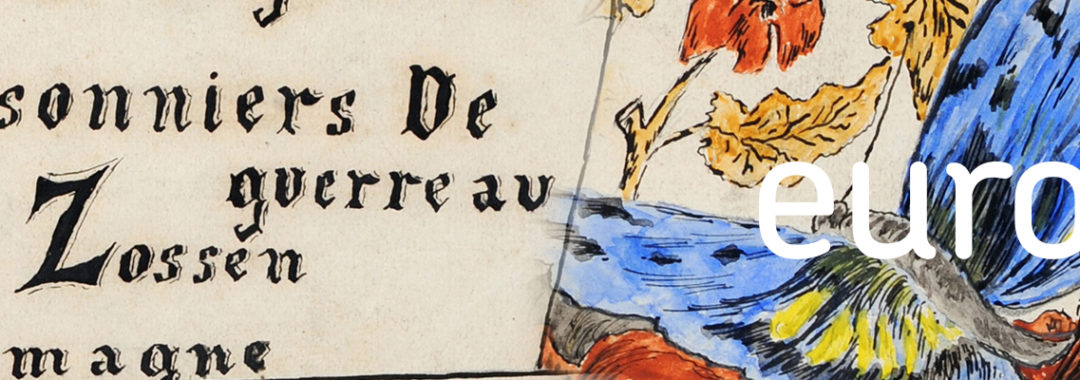 sonniers De
guerre au
Zossen
magne
euro